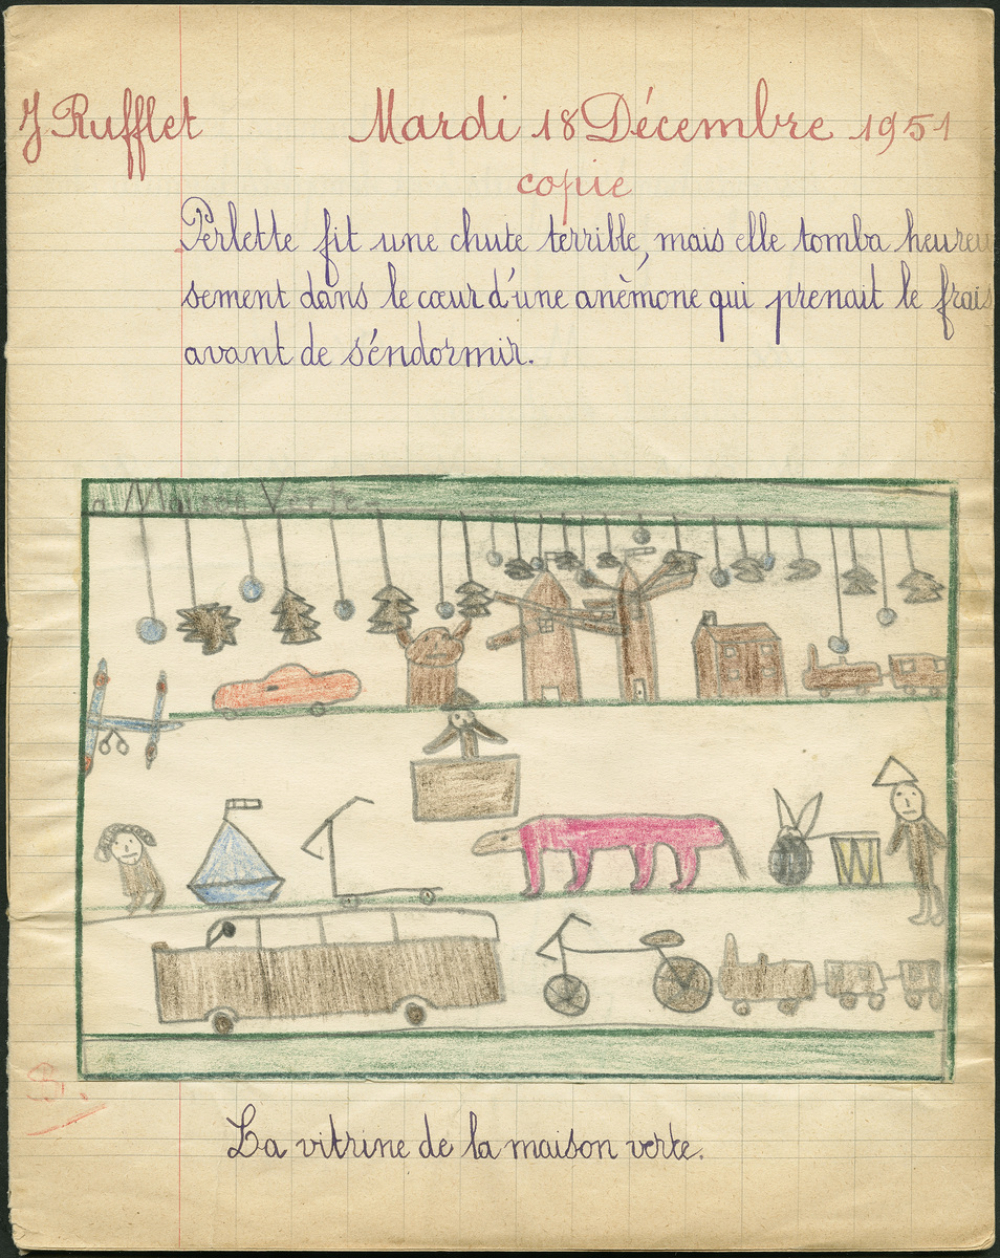 J Rufflet
Mardi 18 Décembre 1951
copie
Perlette fit une chute terrible, mais elle tomba heureu
sement dans le cœur d'une anèmone qui prenait le frais
avant de s'éndormir.
a Maison Verte
B.
La vitrine de la maison verte.